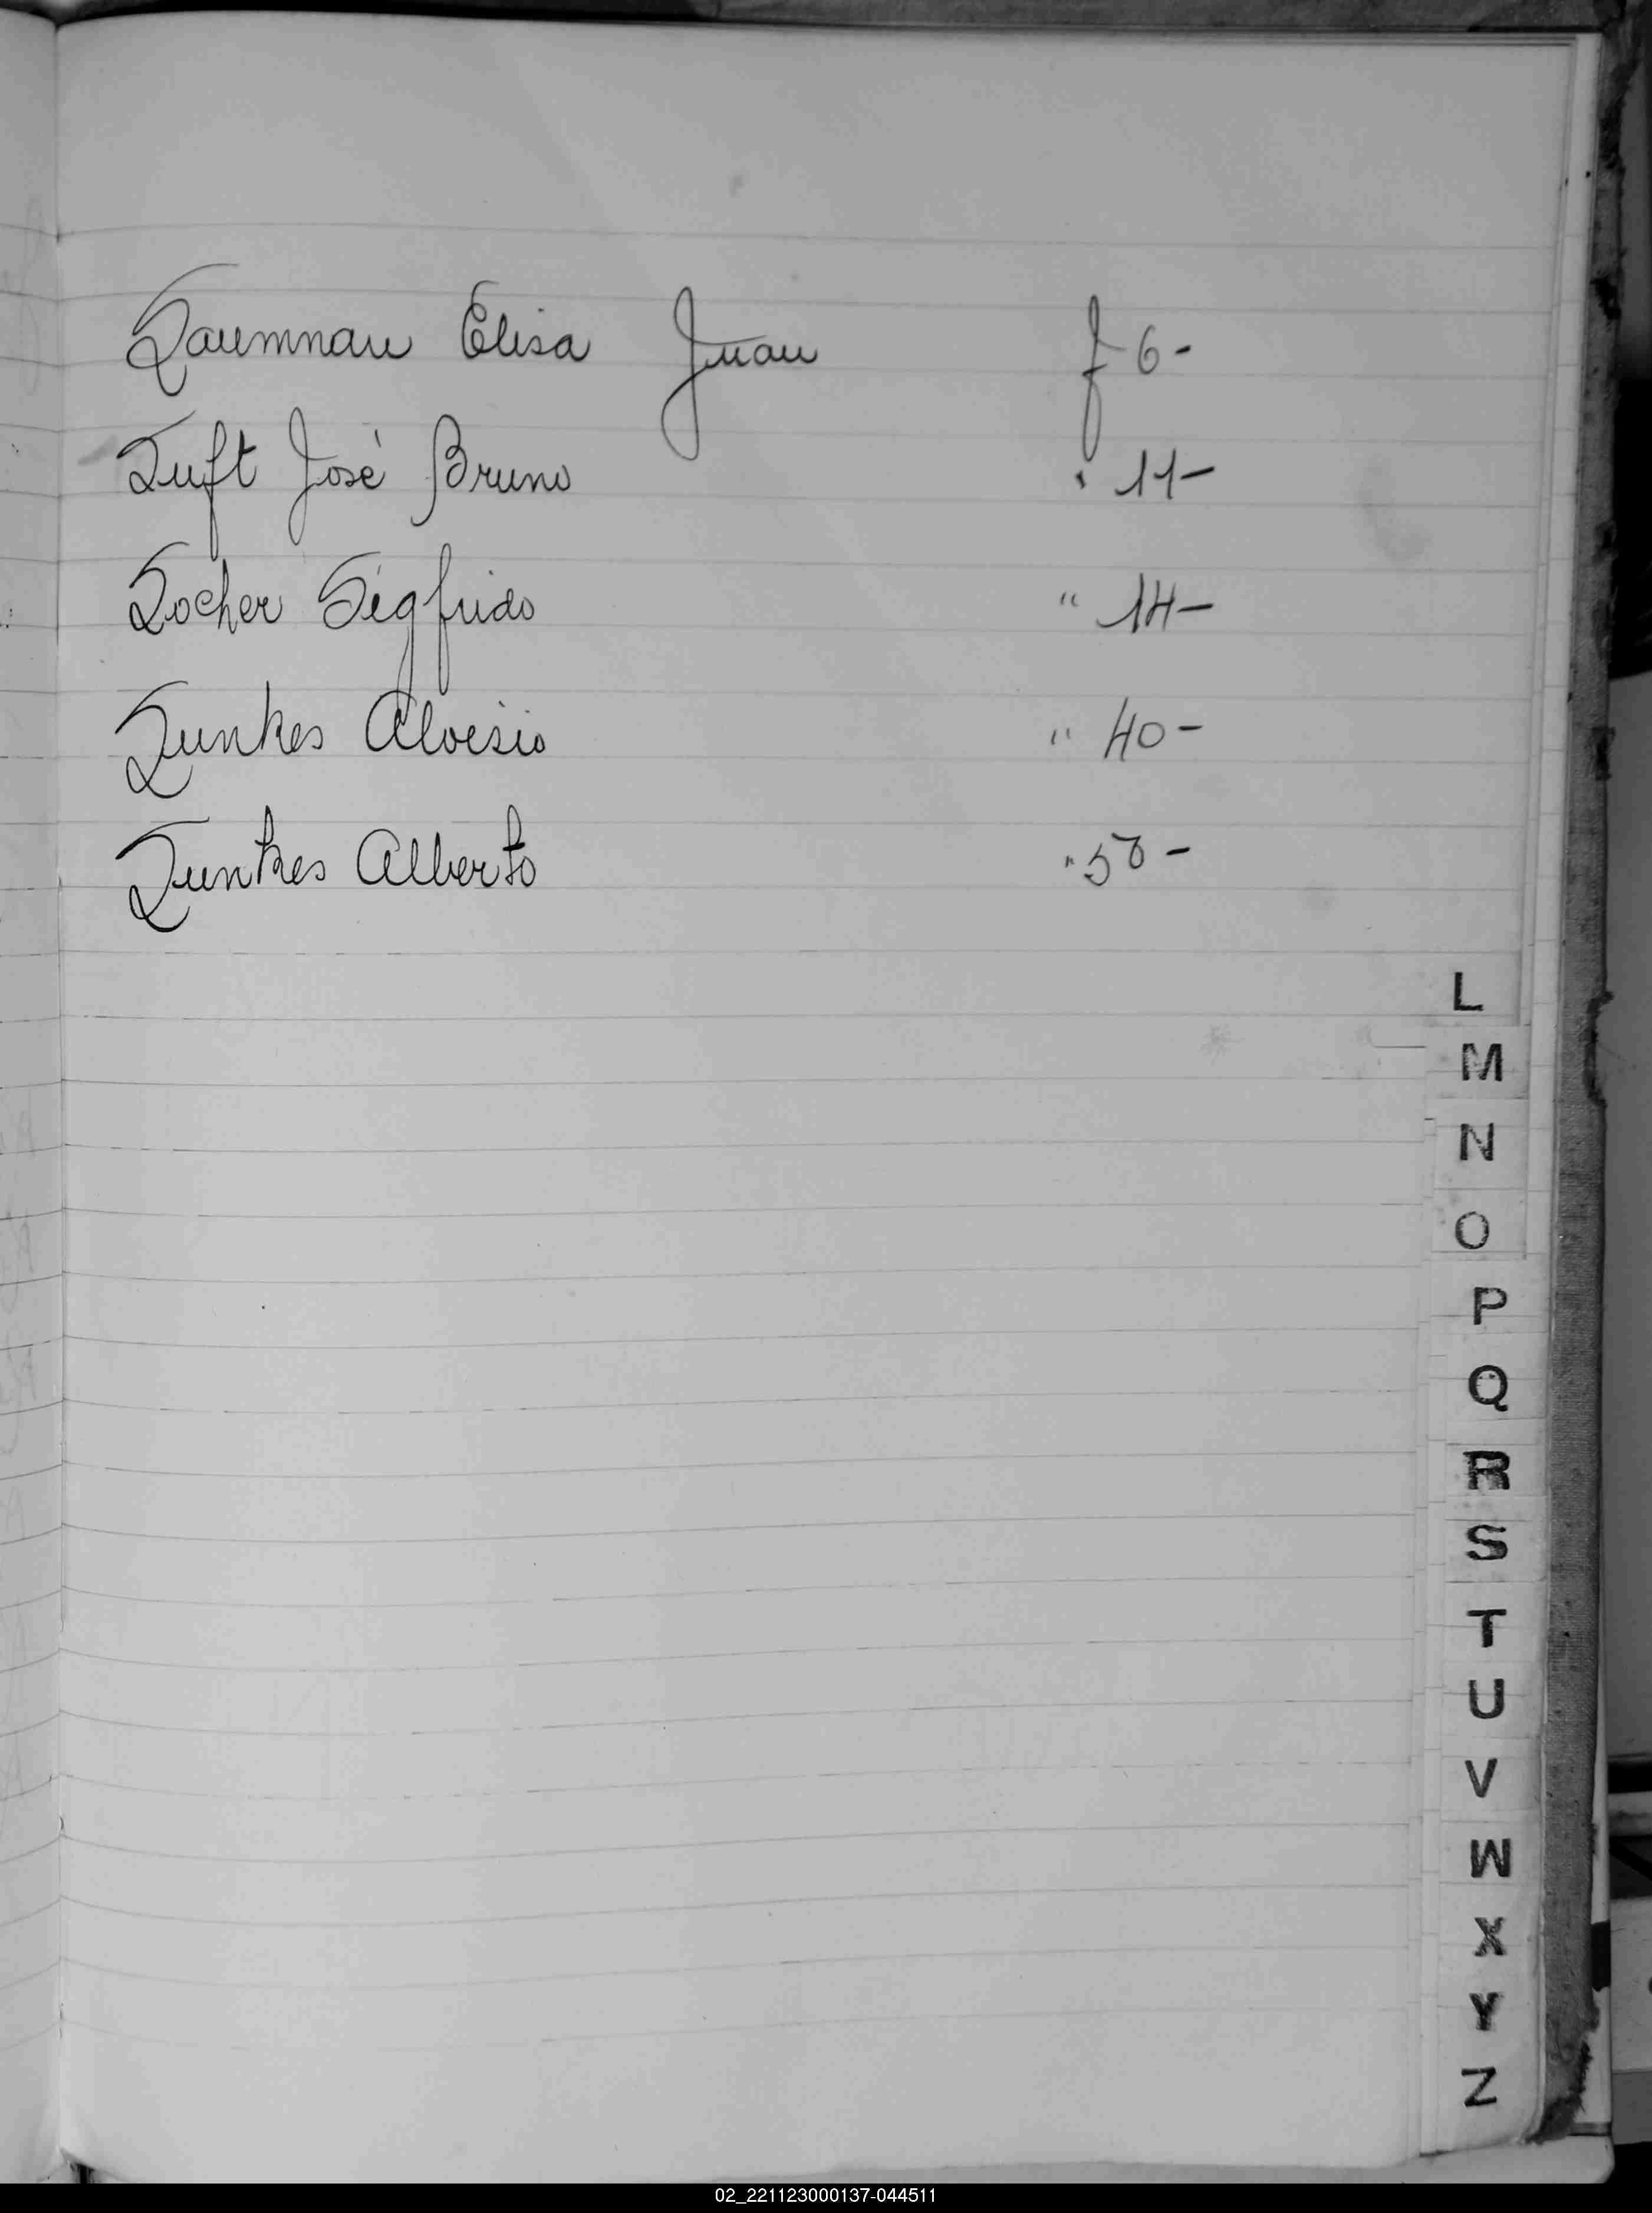 Laumman Elisa Juan f 6-
Luft José Bruno " 11-
Locher Sigfrido " 14-
Lunkes Aloisio " 40-
Lunkes Alberto "
L
M
N
O
P
Q
R
S
T
U
V
W
X
Y
Z
02_221123000137-044511